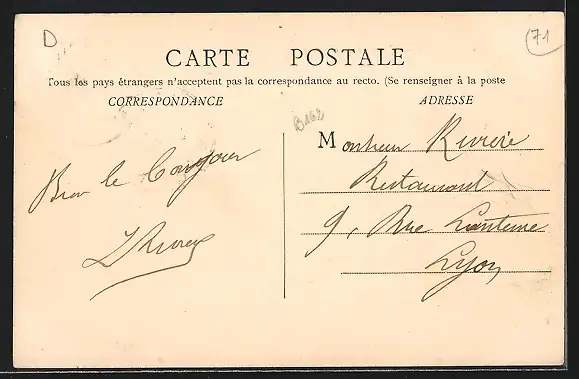 D
71
CARTE POSTALE
Tous les pays étrangers n'acceptent pas la correspondance au recto. (Se renseigner à la poste
CORRESPONDANCE
ADRESSE
B162
Monsieur Rivière
Restaurant
9, Rue Lanterne
Lyon
Bien le